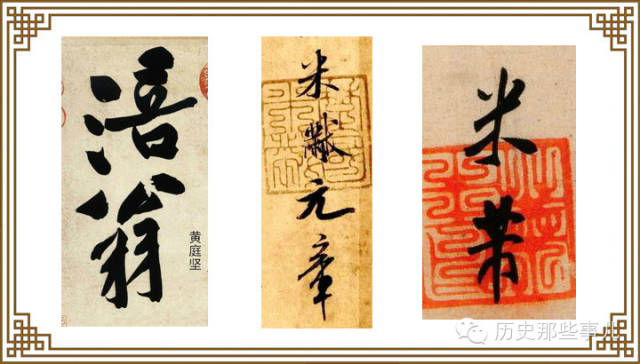 涪翁
黄庭坚
米黻元章
米芾
历史那些事儿